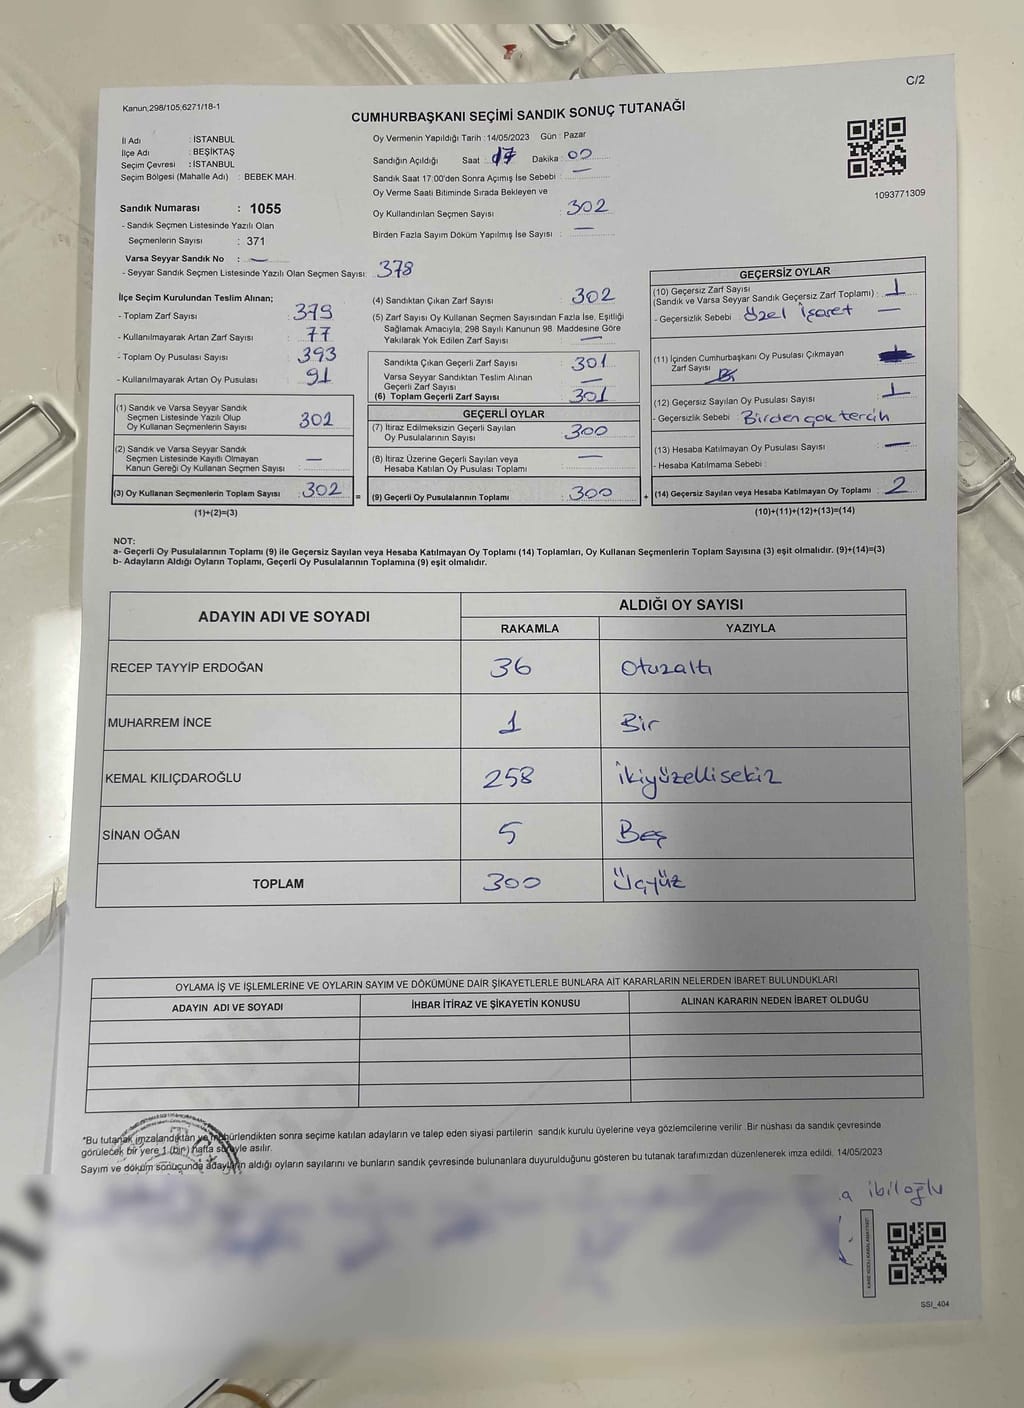 C/2
Kanun,298/105,6271/18-1
CUMHURBAŞKANI SEÇİMİ SANDIK SONUÇ TUTANAĞI
İl Adı : İSTANBUL
İlçe Adı : BEŞİKTAŞ
Seçim Çevresi : İSTANBUL
Seçim Bölgesi (Mahalle Adı) : BEBEK MAH.
Oy Vermenin Yapıldığı Tarih : 14/05/2023 Gün : Pazar
Sandığın Açıldığı Saat : 17 Dakika : 00
Sandık Saat 17:00'den Sonra Açımış İse Sebebi : —
Oy Verme Saati Bitiminde Sırada Bekleyen ve
Oy Kullandırılan Seçmen Sayısı : 302
Birden Fazla Sayım Döküm Yapılmış İse Sayısı : —
1093771309
Sandık Numarası : 1055
- Sandık Seçmen Listesinde Yazılı Olan
Seçmenlerin Sayısı : 371
Varsa Seyyar Sandık No : —
- Seyyar Sandık Seçmen Listesinde Yazılı Olan Seçmen Sayısı: 378
İlçe Seçim Kurulundan Teslim Alınan;
- Toplam Zarf Sayısı : 379
- Kullanılmayarak Artan Zarf Sayısı : 77
- Toplam Oy Pusulası Sayısı : 393
- Kullanılmayarak Artan Oy Pusulası : 91
(1) Sandık ve Varsa Seyyar Sandık
Seçmen Listesinde Yazılı Olup
Oy Kullanan Seçmenlerin Sayısı : 302
(2) Sandık ve Varsa Seyyar Sandık
Seçmen Listesinde Kayıtlı Olmayan
Kanun Gereği Oy Kullanan Seçmen Sayısı : —
(3) Oy Kullanan Seçmenlerin Toplam Sayısı : 302
(1)+(2)=(3)
(4) Sandıktan Çıkan Zarf Sayısı : 302
(5) Zarf Sayısı Oy Kullanan Seçmen Sayısından Fazla İse, Eşitliği
Sağlamak Amacıyla, 298 Sayılı Kanunun 98. Maddesine Göre
Yakılarak Yok Edilen Zarf Sayısı : —
Sandıkta Çıkan Geçerli Zarf Sayısı : 301
Varsa Seyyar Sandıktan Teslim Alınan
Geçerli Zarf Sayısı : —
(6) Toplam Geçerli Zarf Sayısı : 301
GEÇERLİ OYLAR
(7) İtiraz Edilmeksizin Geçerli Sayılan
Oy Pusulalarının Sayısı : 300
(8) İtiraz Üzerine Geçerli Sayılan veya
Hesaba Katılan Oy Pusulası Toplamı : —
= (9) Geçerli Oy Pusulalarının Toplamı : 300
GEÇERSİZ OYLAR
(10) Geçersiz Zarf Sayısı
(Sandık ve Varsa Seyyar Sandık Geçersiz Zarf Toplamı) : 1
- Geçersizlik Sebebi : Özel İşaret —
(11) İçinden Cumhurbaşkanı Oy Pusulası Çıkmayan
Zarf Sayısı
(12) Geçersiz Sayılan Oy Pusulası Sayısı : 1
- Geçersizlik Sebebi : Birden çok tercih
(13) Hesaba Katılmayan Oy Pusulası Sayısı : —
- Hesaba Katılmama Sebebi :
+ (14) Geçersiz Sayılan veya Hesaba Katılmayan Oy Toplamı : 2
(10)+(11)+(12)+(13)=(14)
NOT:
a- Geçerli Oy Pusulalarının Toplamı (9) ile Geçersiz Sayılan veya Hesaba Katılmayan Oy Toplamı (14) Toplamları, Oy Kullanan Seçmenlerin Toplam Sayısına (3) eşit olmalıdır. (9)+(14)=(3)
b- Adayların Aldığı Oyların Toplamı, Geçerli Oy Pusulalarının Toplamına (9) eşit olmalıdır.
ADAYIN ADI VE SOYADI ALDIĞI OY SAYISI
RAKAMLA YAZIYLA
RECEP TAYYİP ERDOĞAN 36 Otuzaltı
MUHARREM İNCE 1 Bir
KEMAL KILIÇDAROĞLU 258 İkiyüzellisekiz
SİNAN OĞAN 5 Beş
TOPLAM 300 Üçyüz
OYLAMA İŞ VE İŞLEMLERİNE VE OYLARIN SAYIM VE DÖKÜMÜNE DAİR ŞİKAYETLERLE BUNLARA AİT KARARLARIN NELERDEN İBARET BULUNDUKLARI
ADAYIN ADI VE SOYADI İHBAR İTİRAZ VE ŞİKAYETİN KONUSU ALINAN KARARIN NEDEN İBARET OLDUĞU
*Bu tutanak imzalandıktan ve mühürlendikten sonra seçime katılan adayların ve talep eden siyasi partilerin sandık kurulu üyelerine veya gözlemcilerine verilir .Bir nüshası da sandık çevresinde
görülecek bir yere 1 (bir) hafta süreyle asılır.
Sayım ve döküm sonucunda adayların aldığı oyların sayılarını ve bunların sandık çevresinde bulunanlara duyurulduğunu gösteren bu tutanak tarafımızdan düzenlenerek imza edildi. 14/05/2023
ibiloğlu
SSI_404